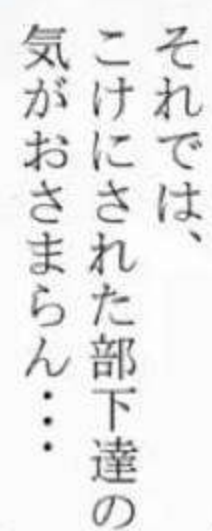 それでは、
こけにされた部下達の
気がおさまらん・・・